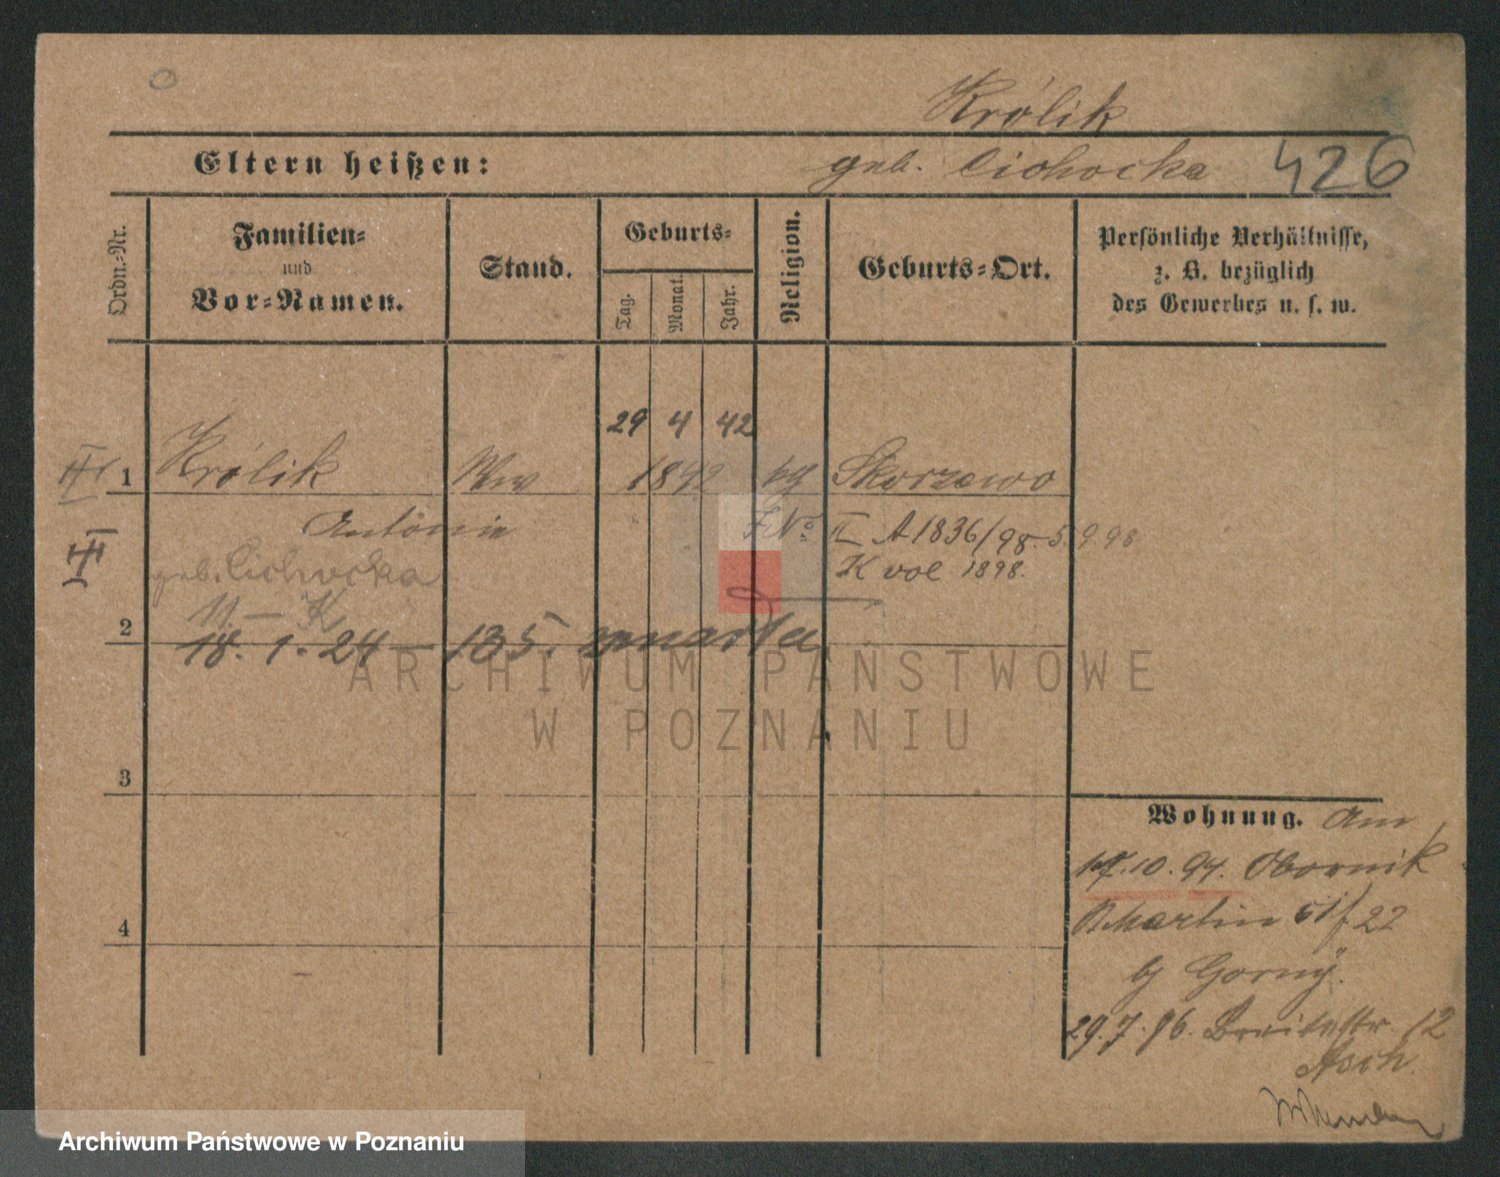 Królik
Eltern heißen: geb. Cichocka 426
Ordn.-Nr.
Familien-
und
Vor-Namen.
Stand.
Geburts-
Tag.
Monat.
Jahr.
Religion.
Geburts-Ort.
Persönliche Verhältnisse,
z. B. bezüglich
des Gewerbes u. s. w.
29 4 42
1 Królik Ww 1842 kg Skorzewo
Antonie F. No II A 1836/98. 5.9.98
geb. Cichocka K vol 1898.
2
18. 1. 24 — 135. zmarła
3
Wohnung. Am
10. 94. Obornik
Martin 51/22
b/ Gorny.
4
29.7.96. Breitestr. 12
Asch.
ARCHIWUM PAŃSTWOWE
W POZNANIU
Archiwum Państwowe w Poznaniu